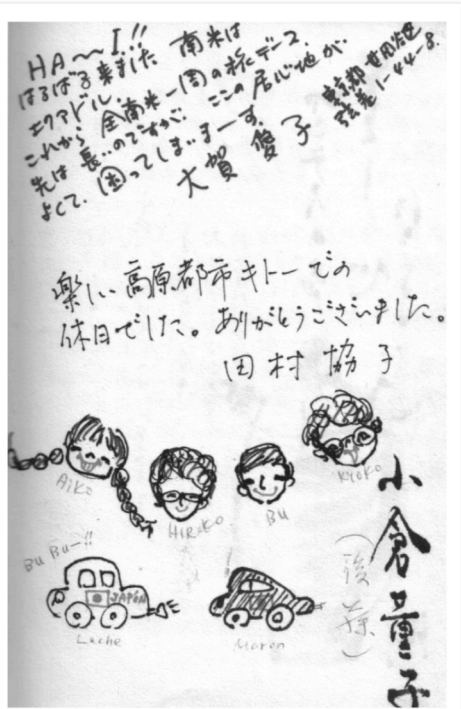 HA〜I.!!
はるばる来ました 南米は
エクアドル
これから 全南米一周の旅デース
先は長いのですが、ここの居心地が
よくて、困ってしまいまーす。
大賀
子
東京都世田谷区
弦巻1-44-8.
楽しい高原都市キトーでの
休日でした。ありがとうございました。
田村協子
AIKO
HIROKO
BU
KYOKO
BU BU-!!
JAPÓN
Leche
Maron
小倉董子